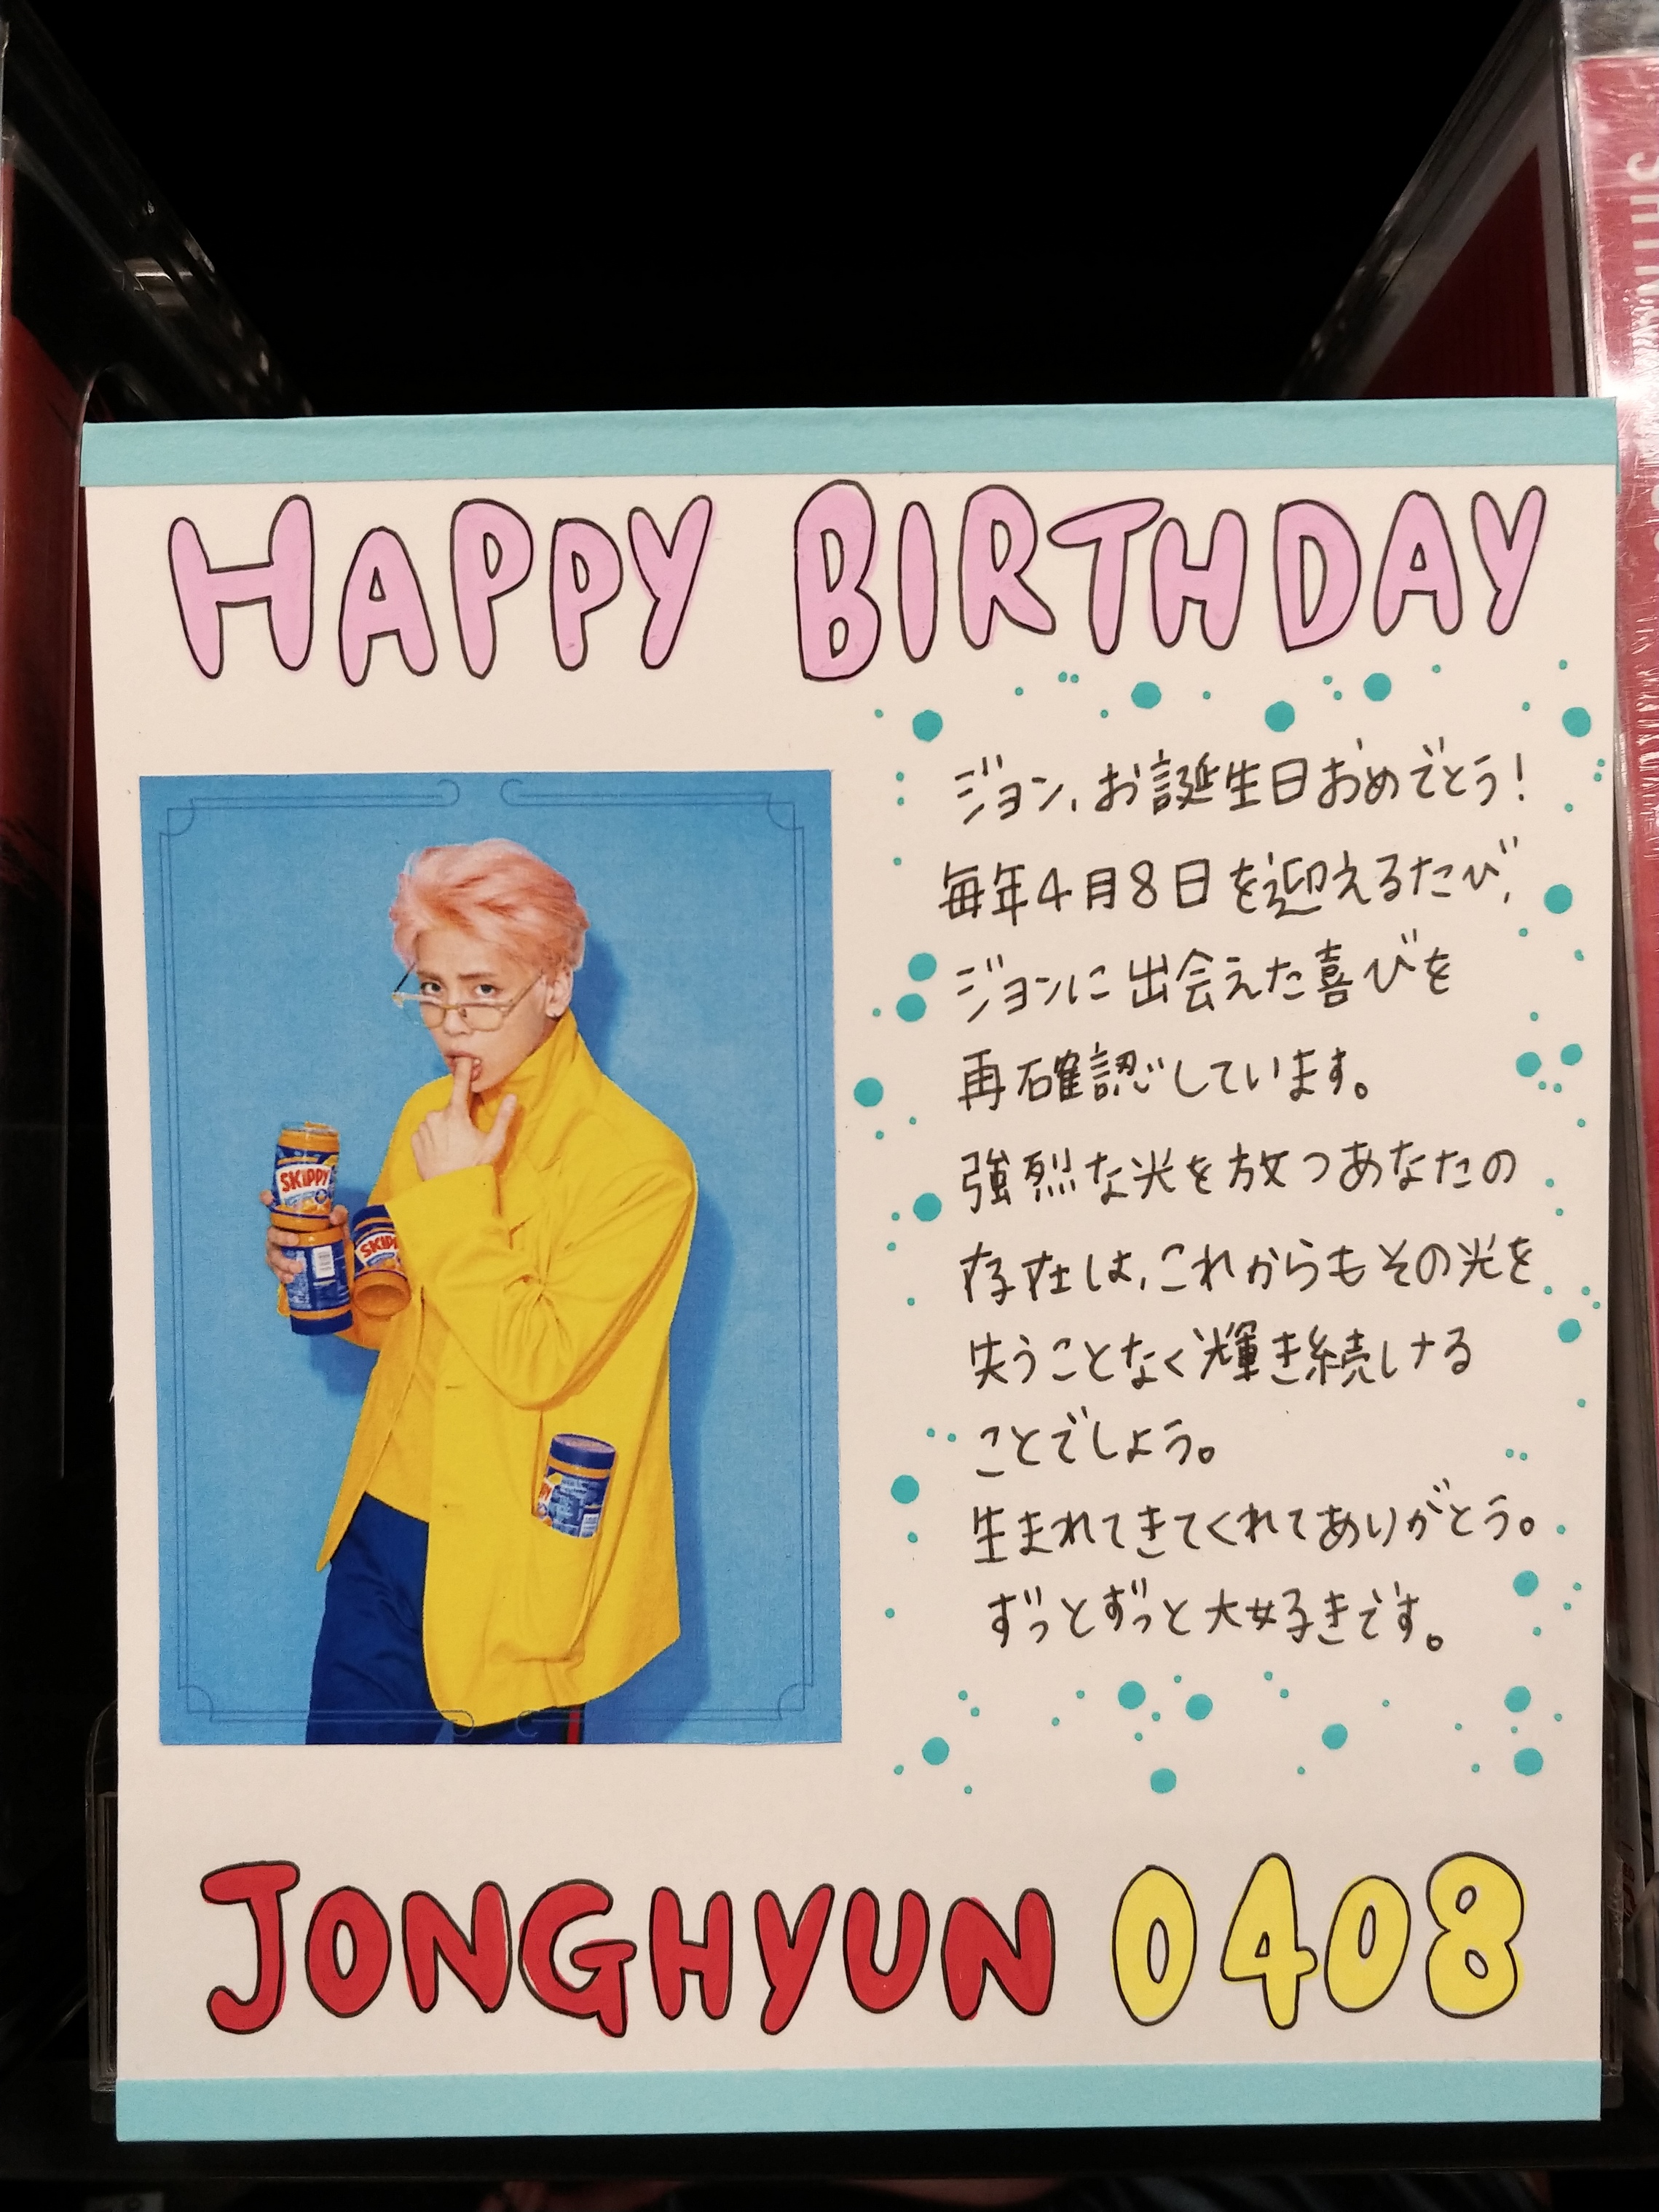 HAPPY BIRTHDAY
ジョン、お誕生日おめでとう！
毎年4月8日を迎えるたび、
ジョンに出会えた喜びを
再確認しています。
強烈な光を放つあなたの
存在は、これからもその光を
失うことなく輝き続ける
ことでしょう。
生まれてきてくれてありがとう。
ずっとずっと大好きです。
SKIPPY
SKIPP
JONGHYUN 0408
SHIN